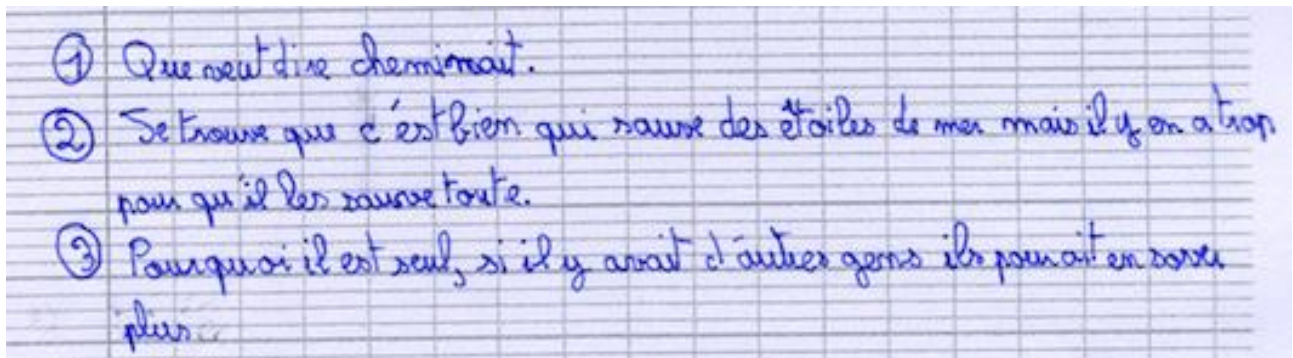 ① Que veut dire cheminait.
② Je trouve que c'est bien qui sauve des étoiles de mer mais il y en a trop
pour qu'il les sauve toute.
③ Pourquoi il est seul, si il y avait d'autres gens ils pourait en sover
plus